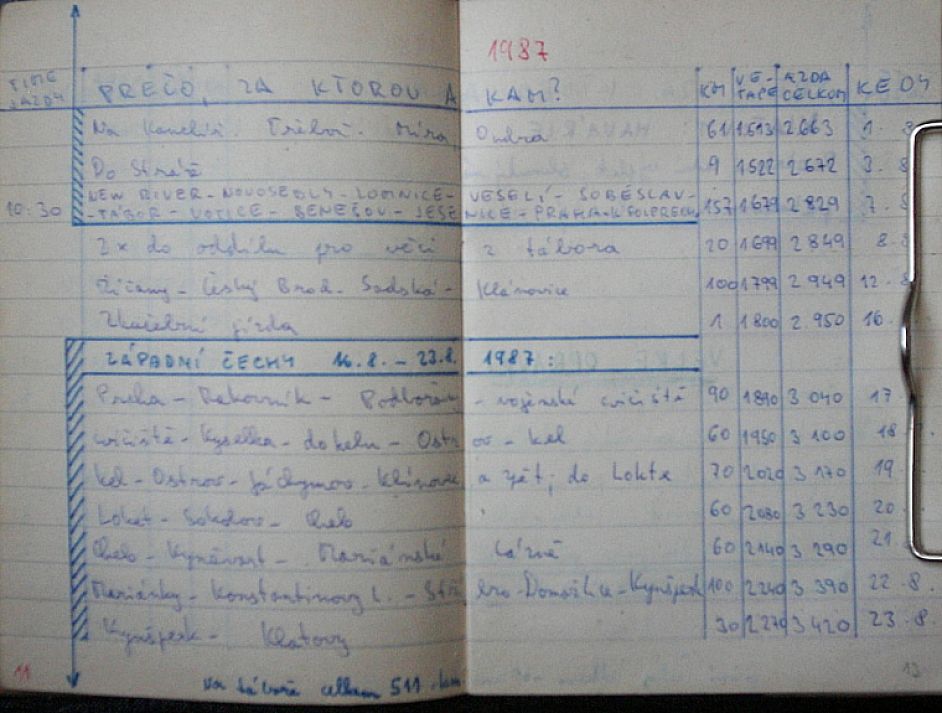 1987
TIME JAZDY PREČO, ZA KTOROU A KAM? KM VE-TAPE JAZDA CELKOM KEDY
Na Kanclíř. Třeboň. Míra, Ondra 61 1.613 2 663 1. 8
Do Stráž 9 1522 2 672 3. 8
NEW RIVER - NOVOSEDLY - LOMNICE - VESELÍ - SOBĚSLAV -
10:30 - TÁBOR - VOTICE - BENEŠOV - JESENICE - PRAHA - 157 1679 2 829 7. 8
2x do oddílu pro věci z tábora 20 1699 2 849 8. 8
Říčany - Český Brod - Sadská - Klánovice 100 1799 2 949 12. 8
Zkušební jízda 1 1800 2 950 16.
ZÁPADNÍ ČECHY 16.8. - 23.8. 1987:
Praha - Rakovník - Podbořany - vojenské cvičiště 90 1890 3 040 17
cvičiště - Kyselka - do kelu - Ostrov - kel 60 1950 3 100 18
kel - Ostrov - Jáchymov - Klínovec a zpět; do Lokte 70 2020 3 170 19
Loket - Sokolov - Cheb 60 2080 3 230 20.
Cheb - Kynžvart - Mariánské Lázně 60 2140 3 290 21.
Mariánky - Konstantinovy L. - Stříbro - Domažlice - Kynšperk 100 2240 3 390 22. 8.
Kynšperk - Klatovy 30 2270 3 420 23. 8.
Na táboře celkem 511 km
11 13